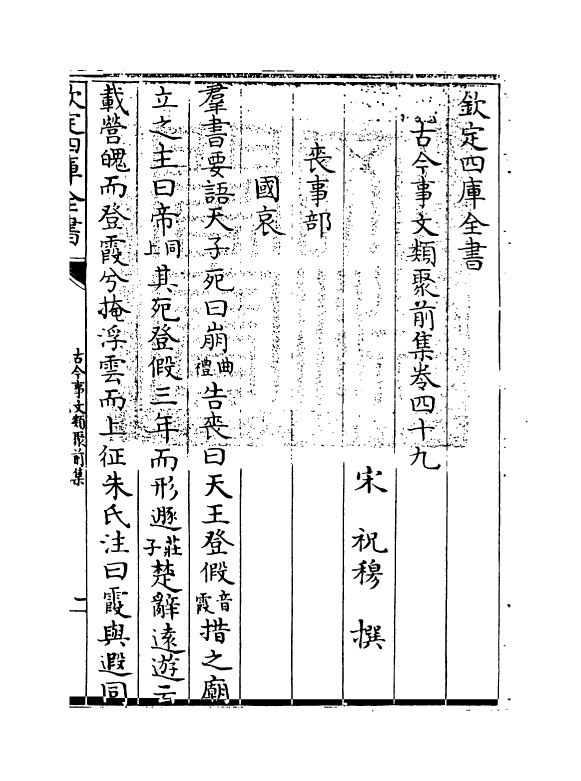 欽定四庫全書
古今事文類聚前集卷四十九
宋 祝穆 撰
喪事部
國哀
羣書要語天子死曰崩曲禮告喪曰天王登假音霞措之廟
立之主曰帝同上其死登假三年而形遯莊子楚辭逺遊云
載營魄而登霞兮掩浮雲而上征朱氏注曰霞與遐同
欽定四庫全書
古今事文類聚前集
二